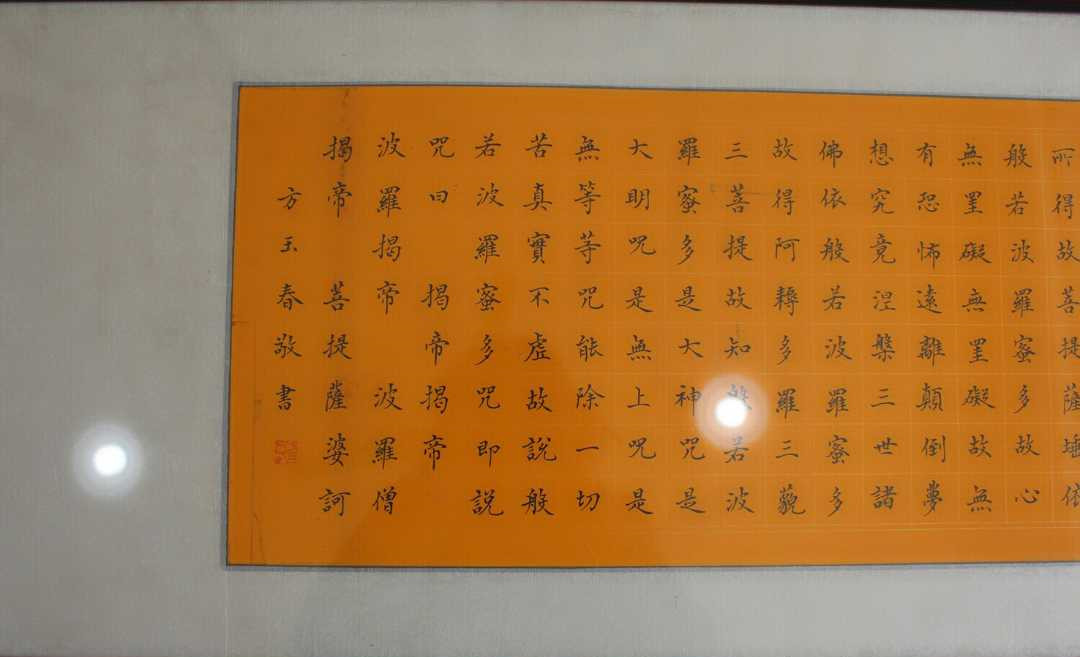 所得故菩提薩埵依
般若波羅蜜多故心
無罣礙無罣礙故無
有恐怖遠離顛倒夢
想究竟涅槃三世諸
佛依般若波羅蜜多
故得阿耨多羅三藐
三菩提故知般若波
羅蜜多是大神咒是
大明咒是無上咒是
無等等咒能除一切
苦真實不虛故說般
若波羅蜜多咒即說
咒曰 揭帝揭帝
波羅揭帝 波羅僧
揭帝 菩提薩婆訶
方玉春敬書